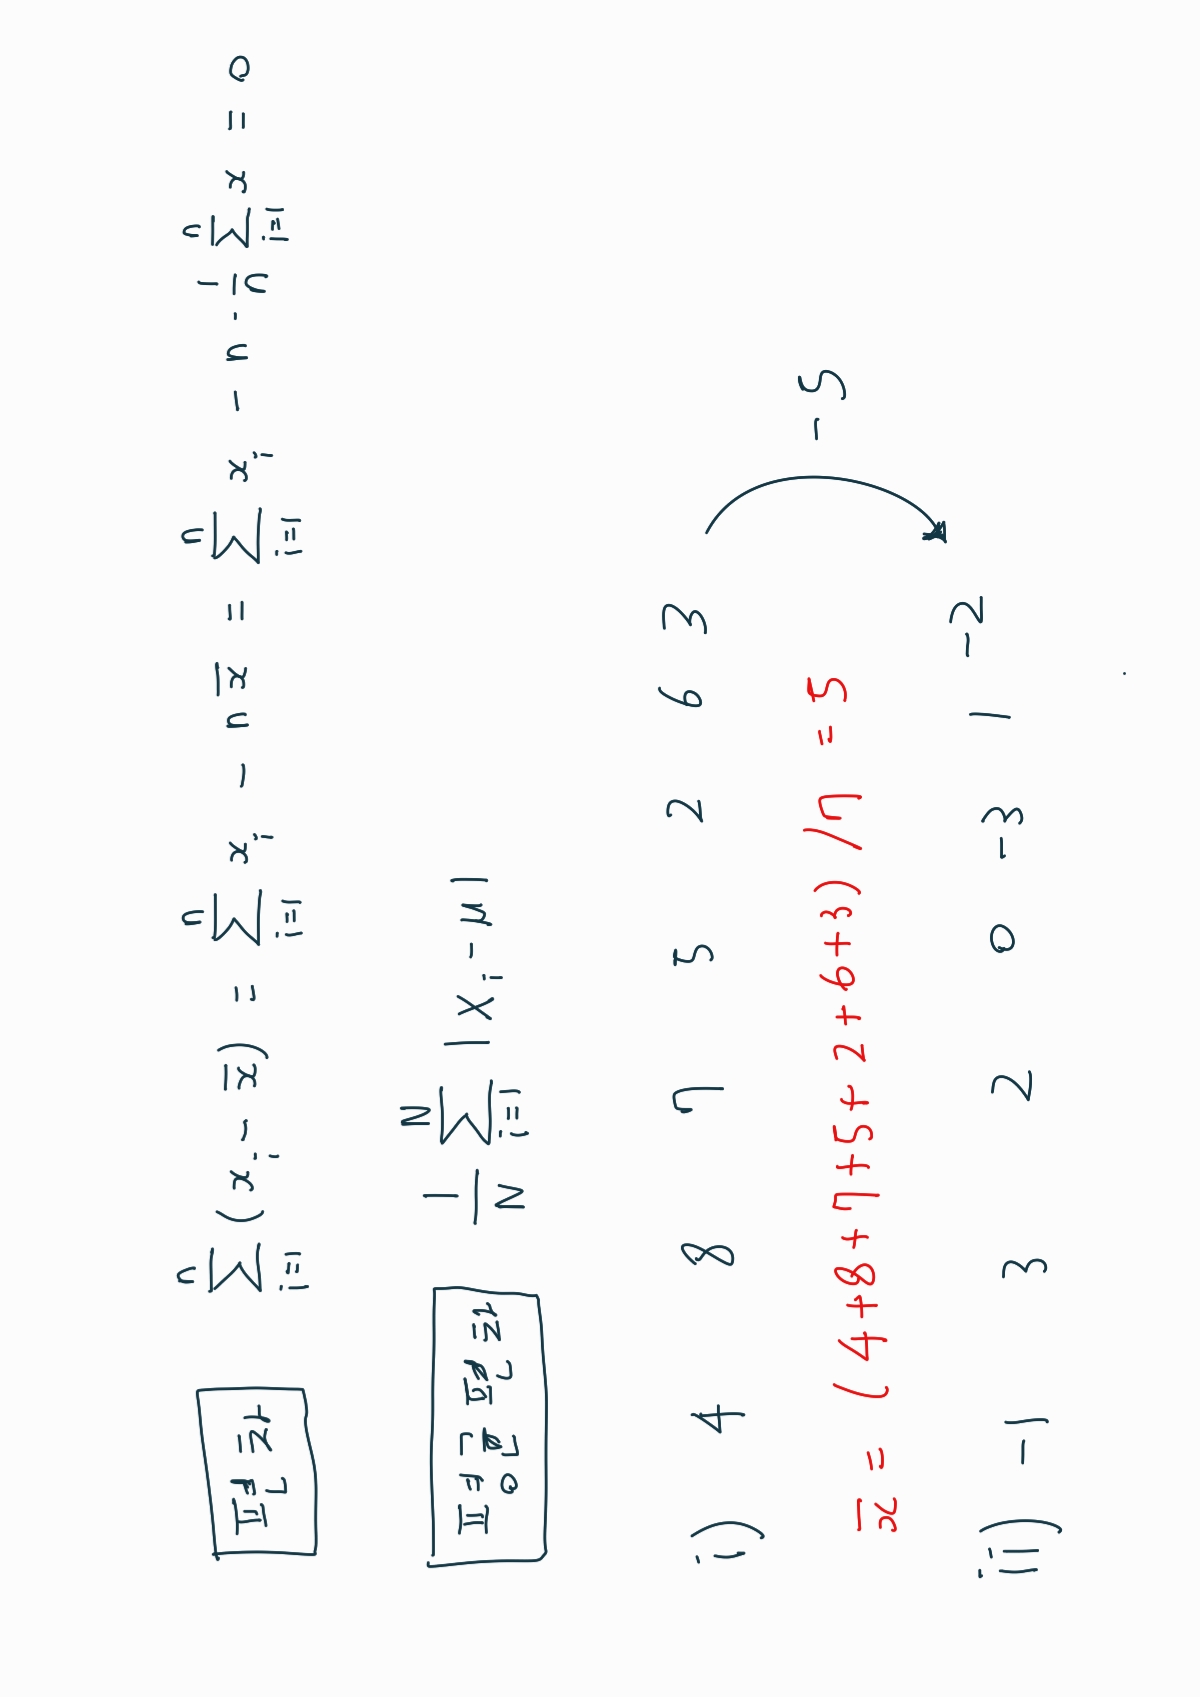 편차 $\sum_{i=1}^{n} (x_i - \bar{x}) = \sum_{i=1}^{n} x_i - n\bar{x} = \sum_{i=1}^{n} x_i - n \cdot \frac{1}{n} \sum_{i=1}^{n} x = 0$
평균 편차 $\frac{1}{N} \sum_{i=1}^{N} |X_i - \mu|$
i) 4 8 7 5 2 6 3
$\bar{x}$ = (4+8+7+5+2+6+3)/7 = 5
-5
ii) -1 3 2 0 -3 1 -2